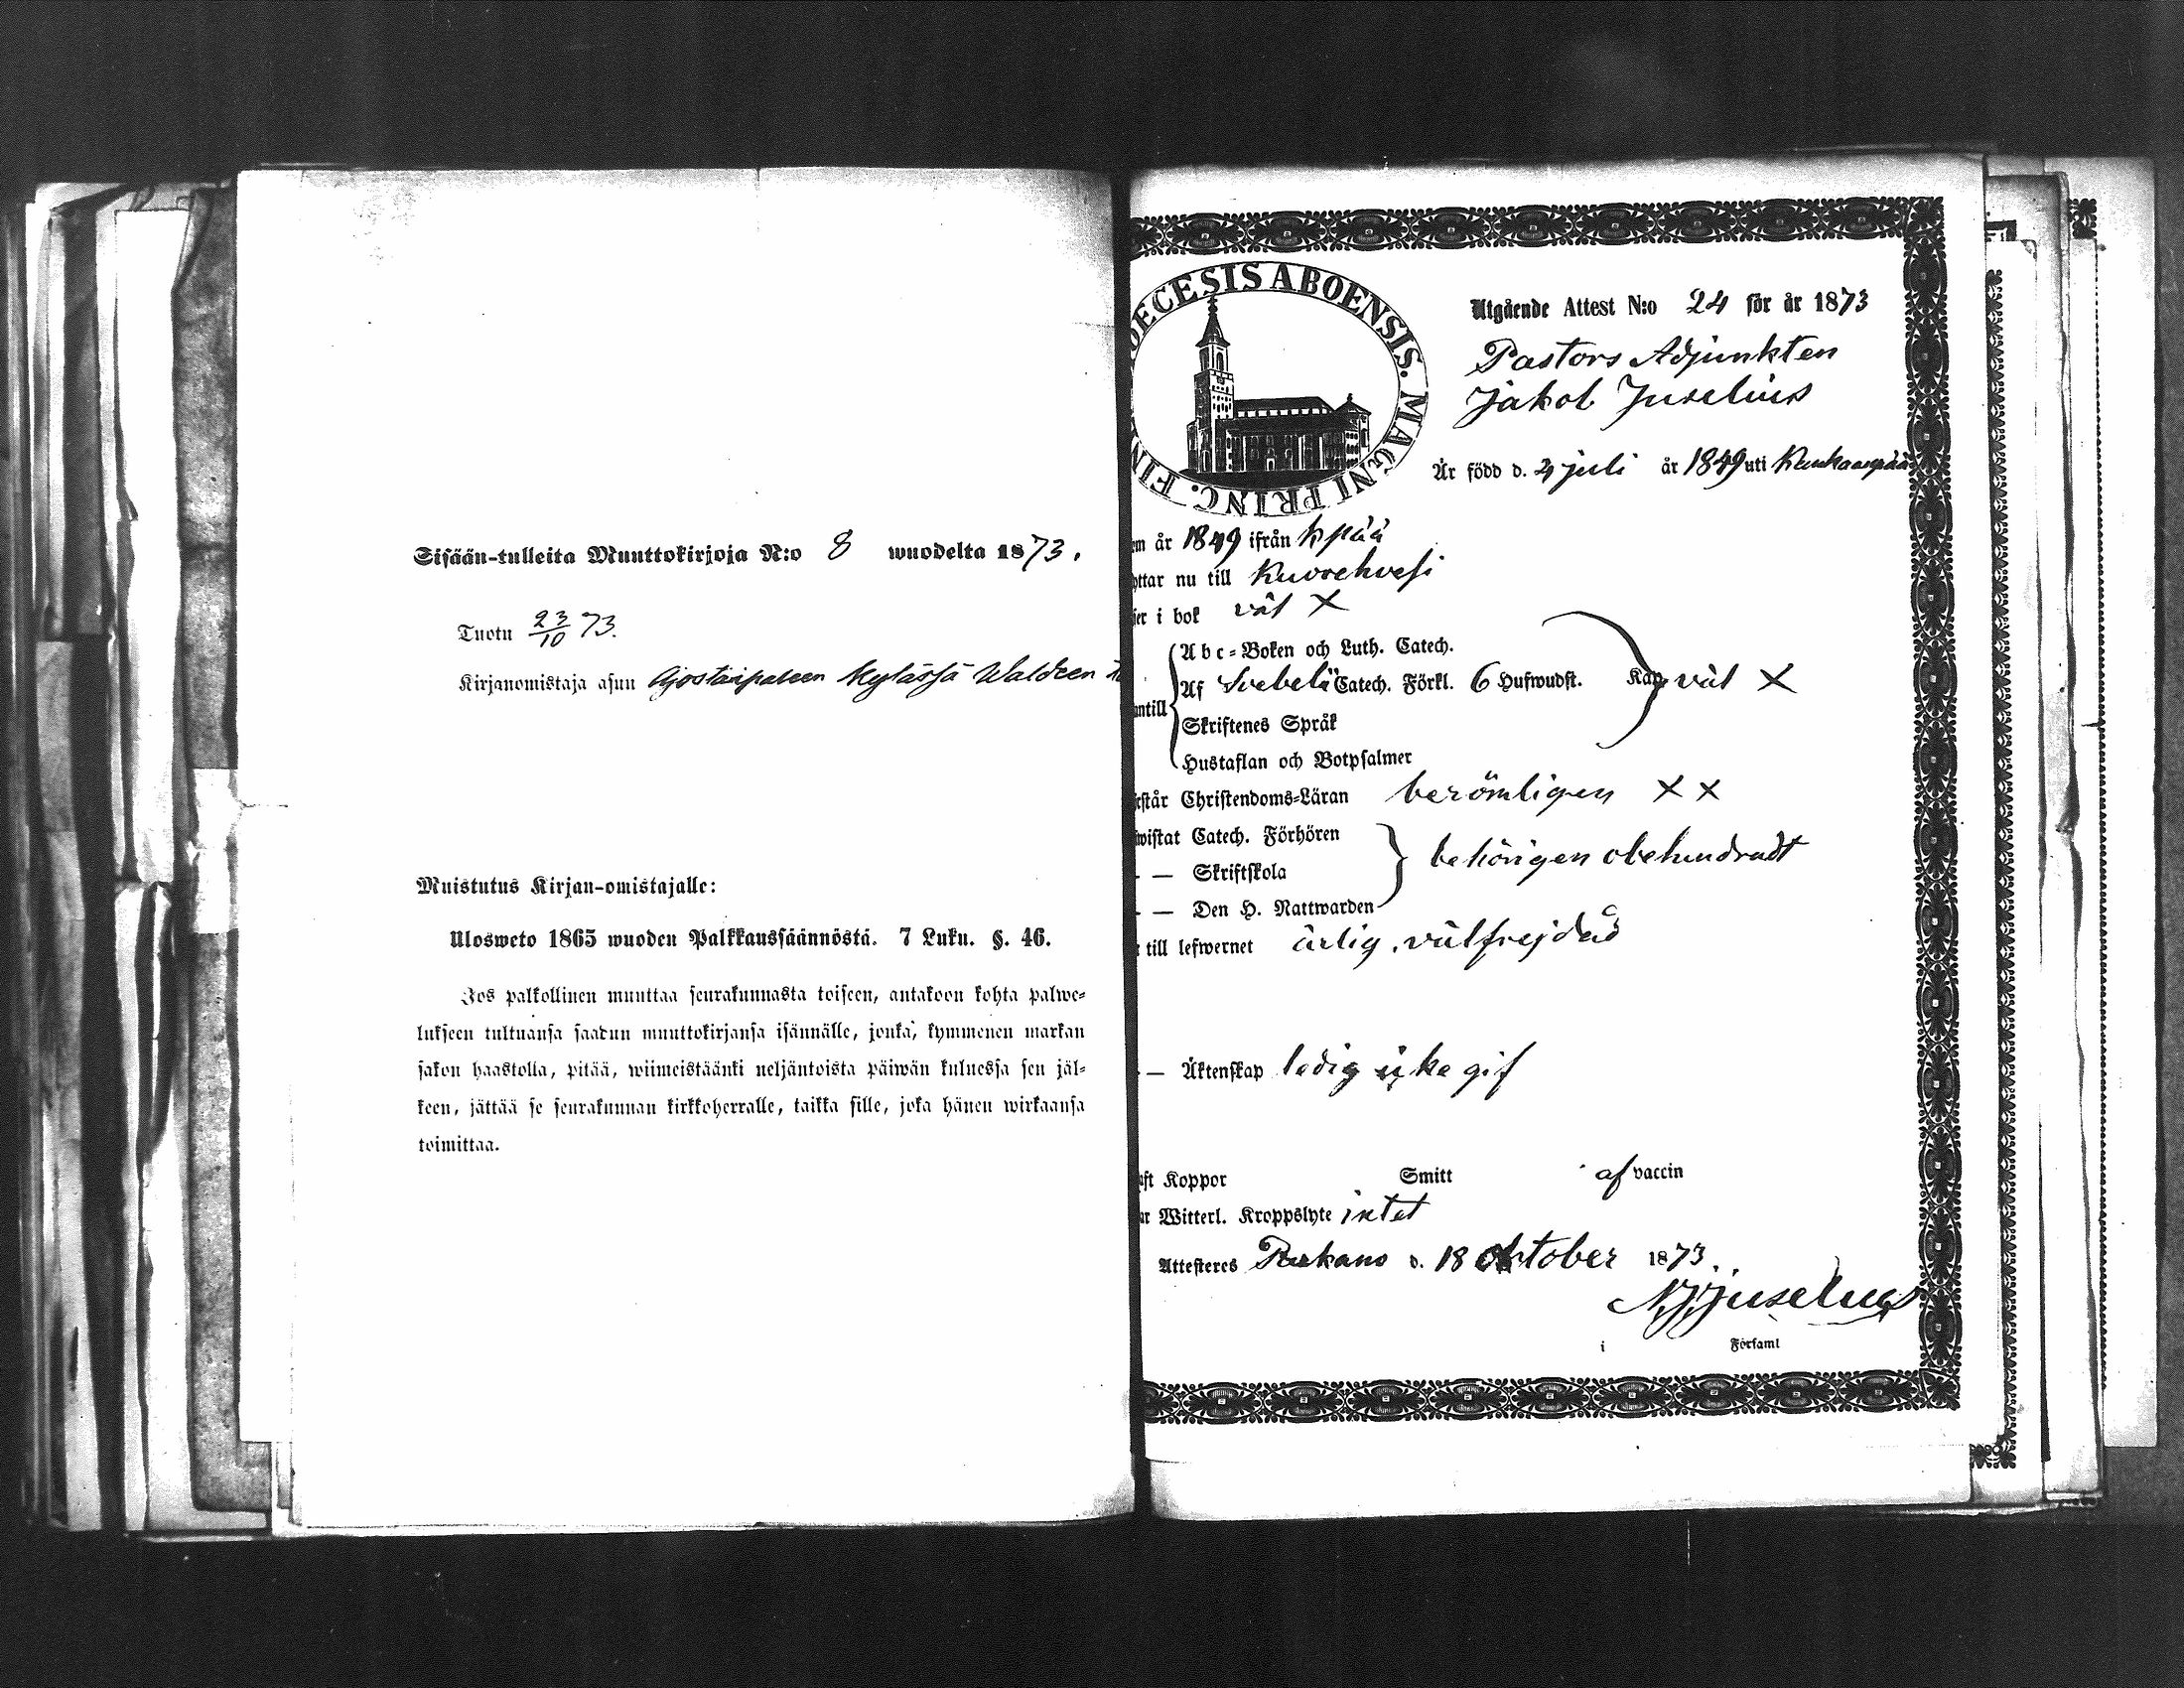 Sisään-tulleita Muuttokirjoja N:o 8 wuodelta 1873.
Tuotu 23/10 73.
Kirjanomistaja asuu kylässä Waldeen
Muistutus Kirjan-omistajalle:
Ulosweto 1865 wuoden Palkkaussäännöstä. 7 Luku. §. 46.
Jos palkollinen muuttaa seurakunnasta toiseen, antakoon kohta palwe-
lukseen tultuansa saadun muuttokirjansa isännälle, jonka, kymmenen markan
sakon haastolla, pitää, wiimeistäänki neljäntoista päiwän kuluessa sen jäl-
keen, jättää se seurakunnan kirkkoherralle, taikka sille, joka hänen wirkaansa
toimittaa.
DECESIS ABOENSIS. MAGNI PRINC. FIN
Utgående Attest N:o 24 för år 1873
Pastors Adjunkten
Jakob Juselius
Är född d. juli år 1849 uti Kankaanpää
m år 1849 ifrån kpää
ttar nu till Kuorehvesi
er i bok väl X
Abc-Boken och Luth. Catech.
Af Svebelii Catech. Förkl. 6 Hufwudst. Kap väl X
antill
Skriftenes Språk
Hustaflan och Botpsalmer
rstår Christendoms-Läran berömligen X X
wistat Catech. Förhören
behörigen obehindradt
- — Skriftskola
- — Den H. Nattwarden
till lefwernet ärlig, välfrejdad
- — Äktenskap ledig icke gif
ft Koppor Smitt af vaccin
ar Witterl. Kroppslyte intet
Attesteres Parkano d. 18 oktober 1873.
Juselius
i Församl